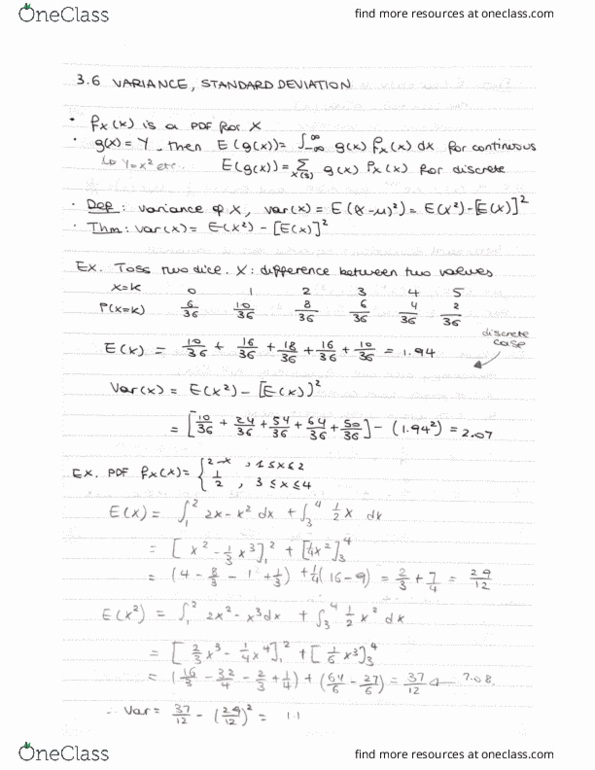 OneClass
find more resources at oneclass.com
3.6 VARIANCE, STANDARD DEVIATION
• fx(x) is a PDF for X
• g(x) = Y, then E(g(x)) = ∫_-∞^∞ g(x) fx(x) dx for continuous
↳ Y=x² etc. E(g(x)) = Σ_x(s) g(x) fx(x) for discrete
• Def: variance of X, var(x) = E(X-μ)²) = E(X²)-[E(X)]²
• Thm: var(x) = E(X²) - [E(x)]²
Ex. Toss two dice. X: difference between two values
X=K 0 1 2 3 4 5
P(X=K) 6/36 10/36 8/36 6/36 4/36 2/36
discrete case
E(x) = 10/36 + 16/36 + 18/36 + 16/36 + 10/36 = 1.94
Var(x) = E(x²) - [E(x))²
= [10/36 + 24/36 + 54/36 + 64/36 + 50/36] - (1.94²) = 2.07
Ex. PDF fx(x) = { 2-x , 1≤x≤2
1/2 , 3≤x≤4
E(x) = ∫_1^2 2x-x² dx + ∫_3^4 1/2 x dx
= [x² - 1/3 x³]_1^2 + [1/4 x²]_3^4
= (4 - 8/3 - 1 + 1/3) + 1/4(16-9) = 2/3 + 7/4 = 29/12
E(x²) = ∫_1^2 2x²-x³dx + ∫_3^4 1/2 x² dx
= [2/3 x³ - 1/4 x⁴]_1^2 + [1/6 x³]_3^4
= (16/3 - 32/4 - 2/3 + 1/4) + (64/6 - 27/6) = 37/12 ← 7.08
∴ Var = 37/12 - (29/12)² = 1.1
OneClass
find more resources at oneclass.com